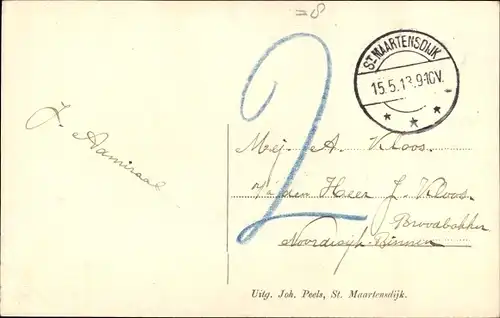 =8
St MAARTENSDIJK
15.5.13.9-10V.
2
J. Admiraal
Mej. A Kloos.
p/a den Heer J. Kloos.
Broodbakker
Noordwijk-Binnen
Uitg. Joh. Peels, St. Maartensdijk.